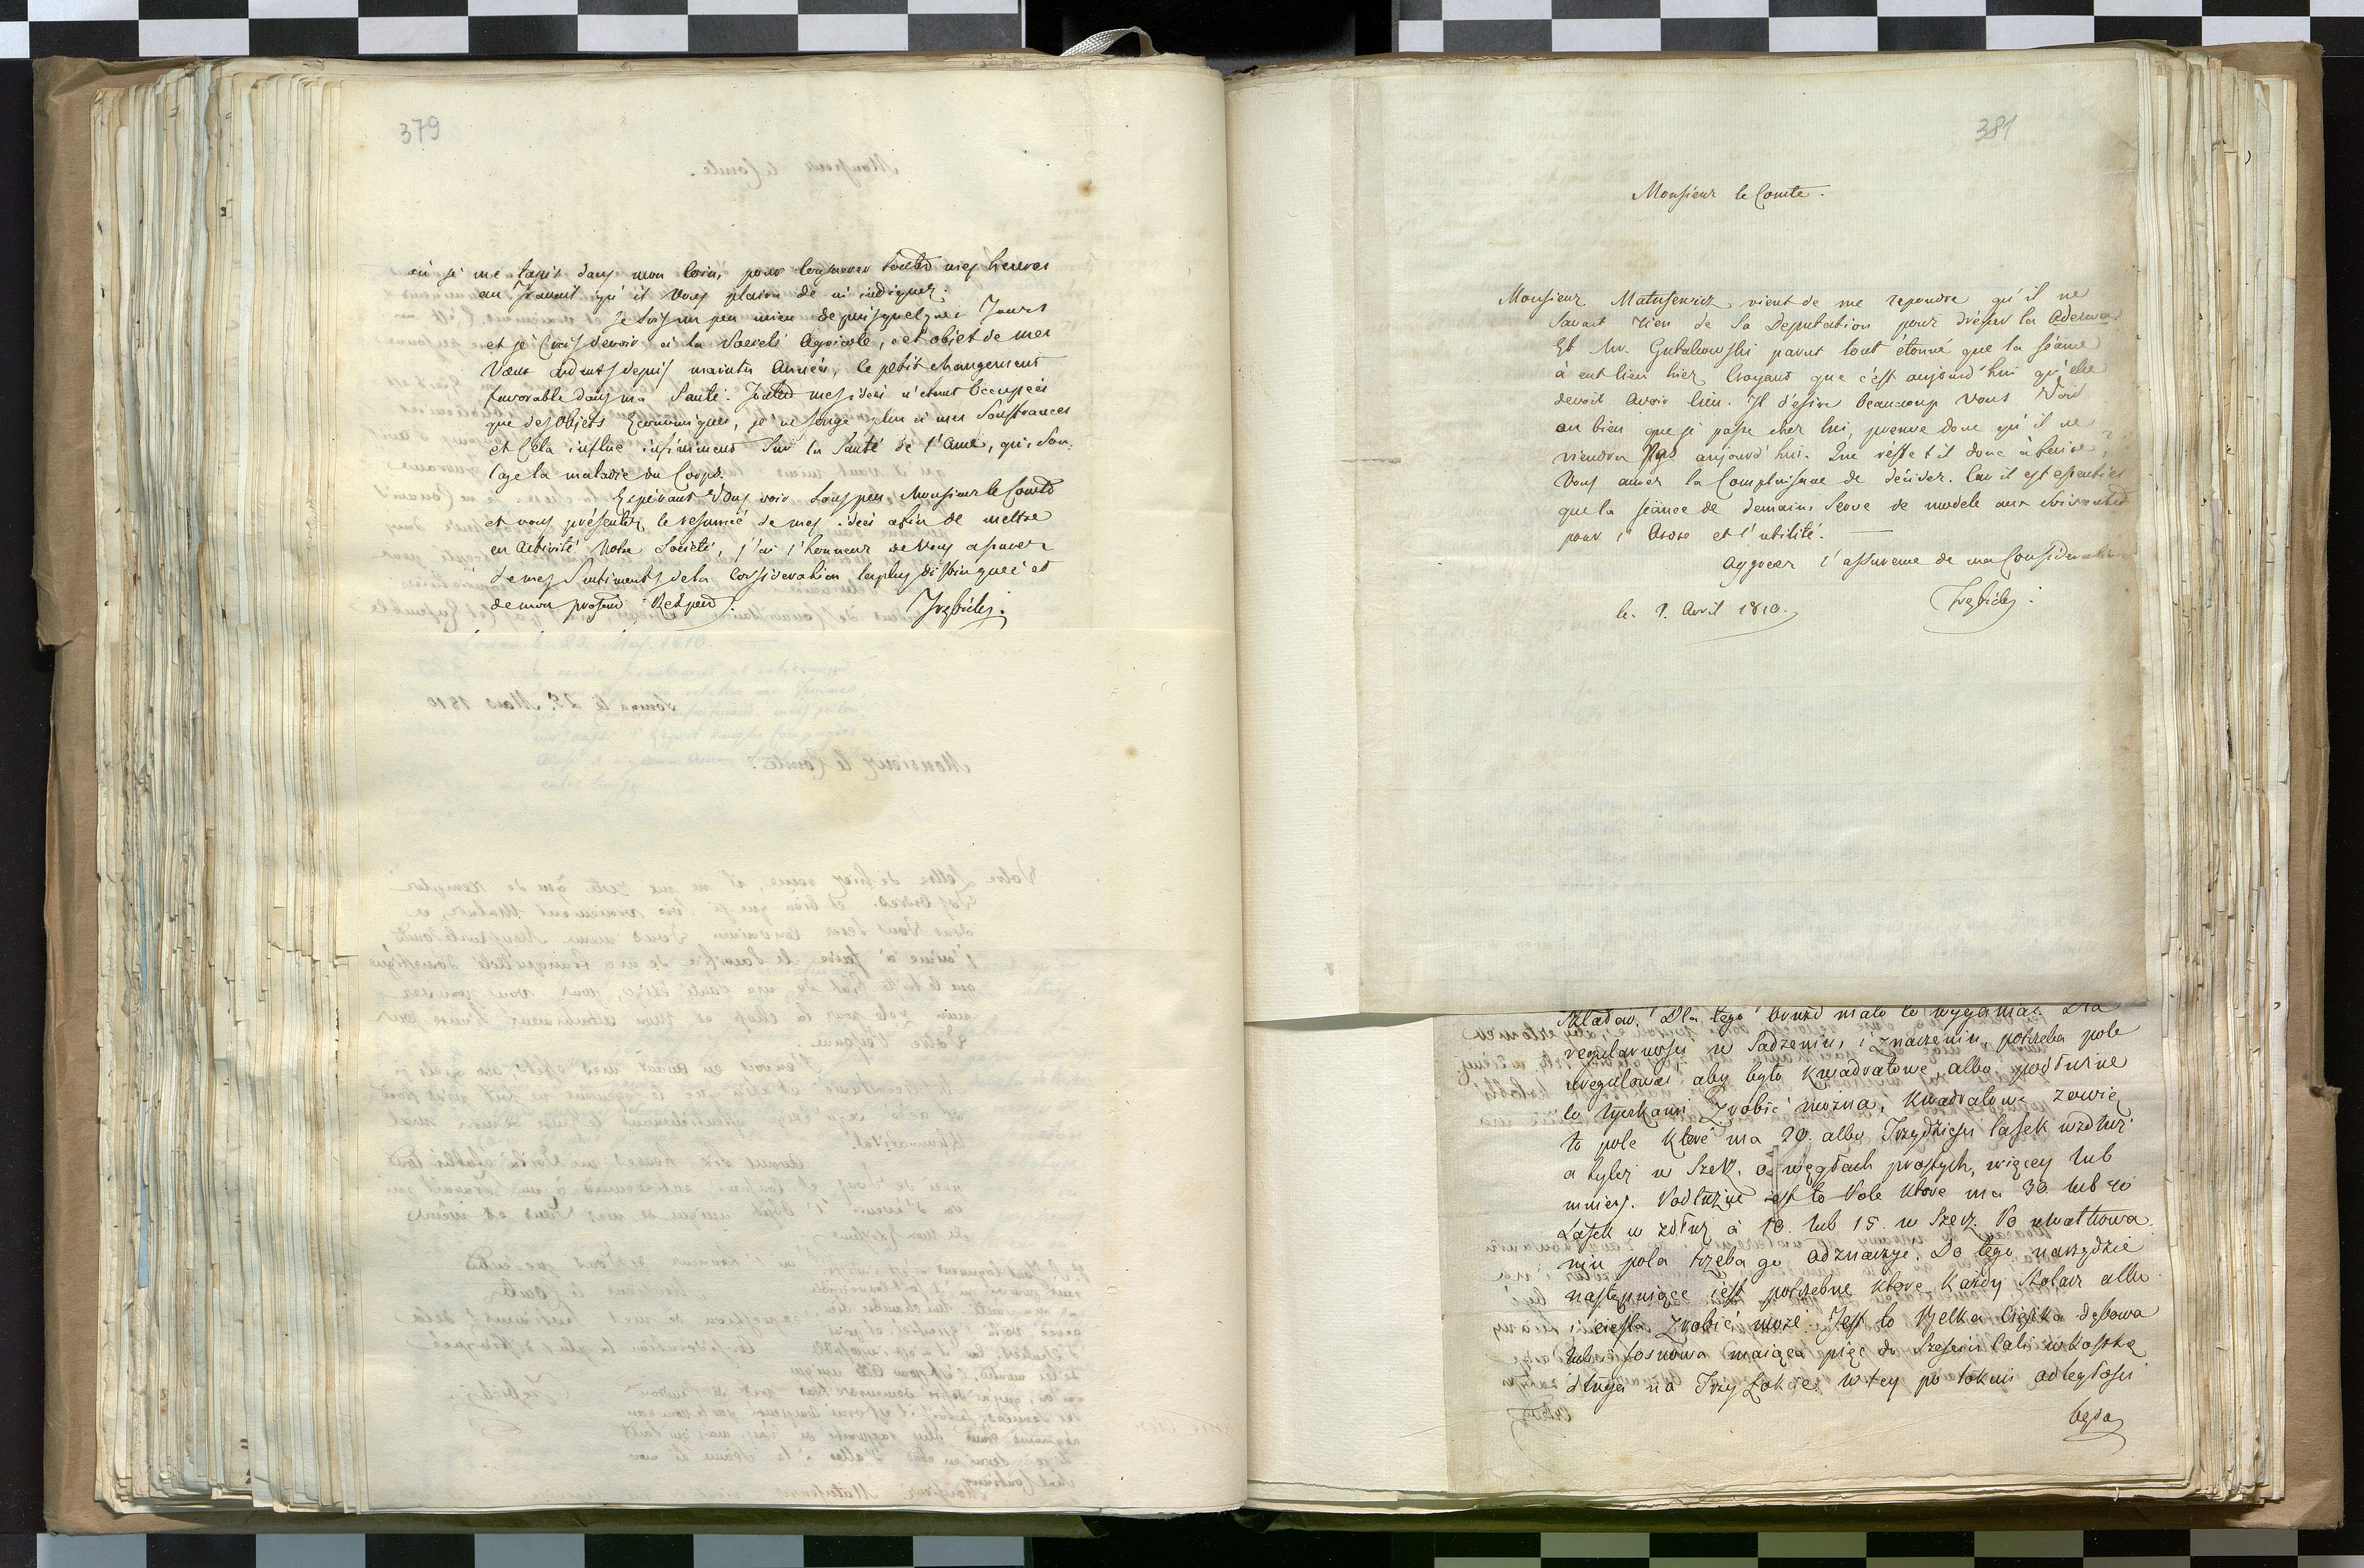 379
où je me tapis dans mon Coin, pour Consacrer toutes mes heures
au Travail qu'il Vous plaira de m'indiquer.
Je suis un peu mieux depuis quelques Jours
et je Crois devoir à la Societé Agricole, cet objet de mes
Vœux ardents depuis maintes Années, le petit changement
favorable dans ma Santé. Toutes mes idées n'etant Occupées
que des Objets Economiques, je ne songe plus à mes Souffrances
et Cela influe infiniment Sur la Santé de l'Ame, qui Sou-
lage la maladie du Corps.
Espérant Vous voir sous peu Monsieur le Comte
et vous présenter le resumé de mes idées afin de mettre
en Activité Notre Societé, j'ai l'honneur de Vous assurer
de mes Sentiments de la Consideration la plus distinguée et
de mon profond Respect.
Trębicki.
381
Monsieur le Comte.
Monsieur Matusewicz vient de me repondre qu'il ne
Savait rien de Sa Deputation pour dresser la
Et Mr. Gutakowski parut tout étonné que la séance
à eut lieu hier Croyant que c'est aujourd'hui qu'elle
devoit Avoir lieu. Il désire beaucoup Vous Voir
ou bien que je passe chez lui, preuve donc qu'il ne
viendra Pas aujourd'hui. Que reste t il donc à faire,
Vous aurez la Complaisance de décider. Car il est essentiel
que la séance de demain Serve de modele aux suivantes
pour l'Ordre et l'utilité.
Aggreer l'assurance de ma Consideration
le. 9. Avril 1810.
Trębicki.
Składow. Dla tego bruzd mało to wygina. Dla
regularnosci w Sadzeniu, i znaczeniu, potrzeba pole
uregulować aby było kwadratowe albo podłużne
to tyczkami Zrobić można, kwadratowe zowię
to pole które ma 20. albo Trzydzieści łasek wzdłuż
a tyleż w Szerz. o węgłach prostych, więcey lub
mniey. Podłużne jest to Pole które ma 30 lub 40
Łasek w zdłuż à 10. lub 15. w Szerz. Po ukwatrowa
niu pola trzeba go odznaczyć. Do tego narzędzie
następujące jest potrzebne które każdy Stolarz albo
i cieśla Zrobić może. Jest to Belka Cięszka dębowa
lub sosnowa mająca pięć do Sześciu Cali w kostkę
długa na Trzy Łokcie, w tey po łokciu odległości
będą